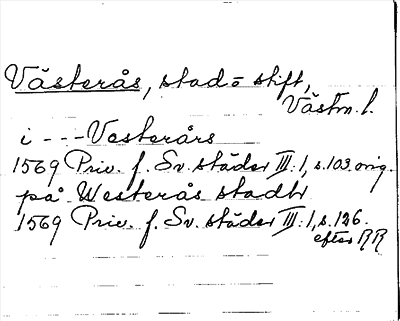 Västerås, stad o stift,
Västm. l.
i --- Vesterårs
1569 Priv. f. Sv. städer III:1, s. 103 orig.
på Westerås stadh
1569 Priv. f. Sv. städer III:1, s. 126.
efter RR